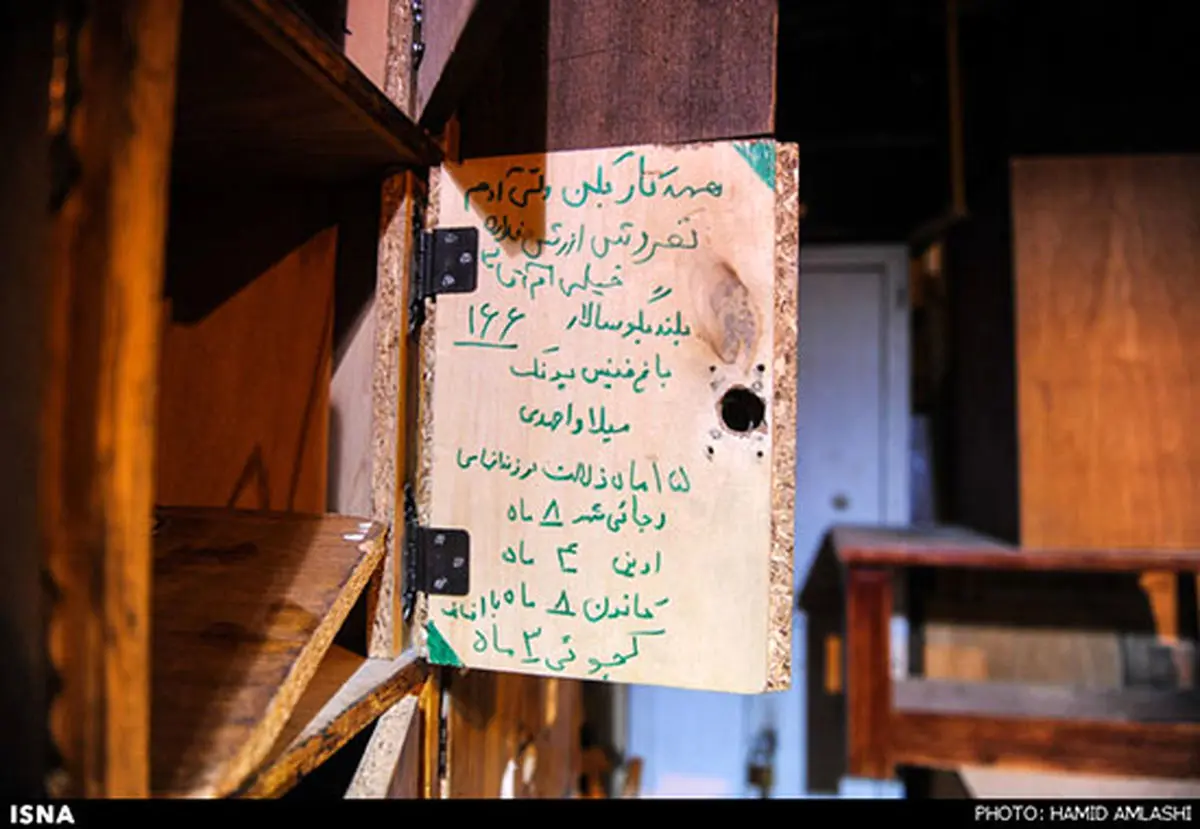 همه کار بکن ولی آدم
نفروش ارزش نداره
خیلی آقایی
بلند بگو سالار ۱۶۶
با غم
میلاد احمدی
۱۵ ماه ذلالت در زندانهای
رجائی شهر ۸ ماه
اوین ۴ ماه
خاندن ۸ ماه با
کچوئی ۳ ماه
ISNA
PHOTO: HAMID AMLASHI